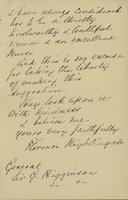 I have always considered
her to be a strictly
trustworthy & truthful
woman & an excellent
Nurse
And this is my excuse
for taking the liberty
of making this
suggestion
Pray look upon it
with kindness
& believe me
yours very faithfully
Florence Nightingale
General
Sir G Higginson